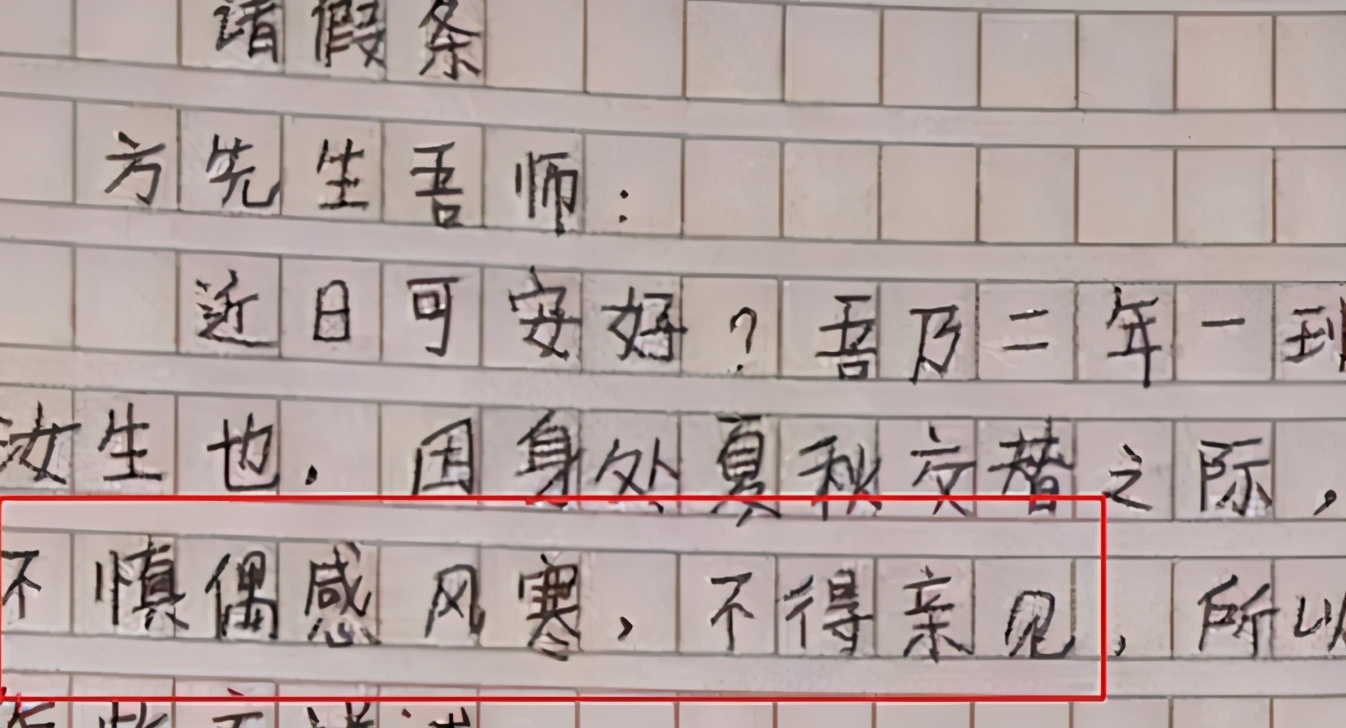 请假条
方先生吾师：
近日可安好？吾乃二年一到
汝生也．因身处夏秋交替之际，
不慎偶感风寒，不得亲见，所以